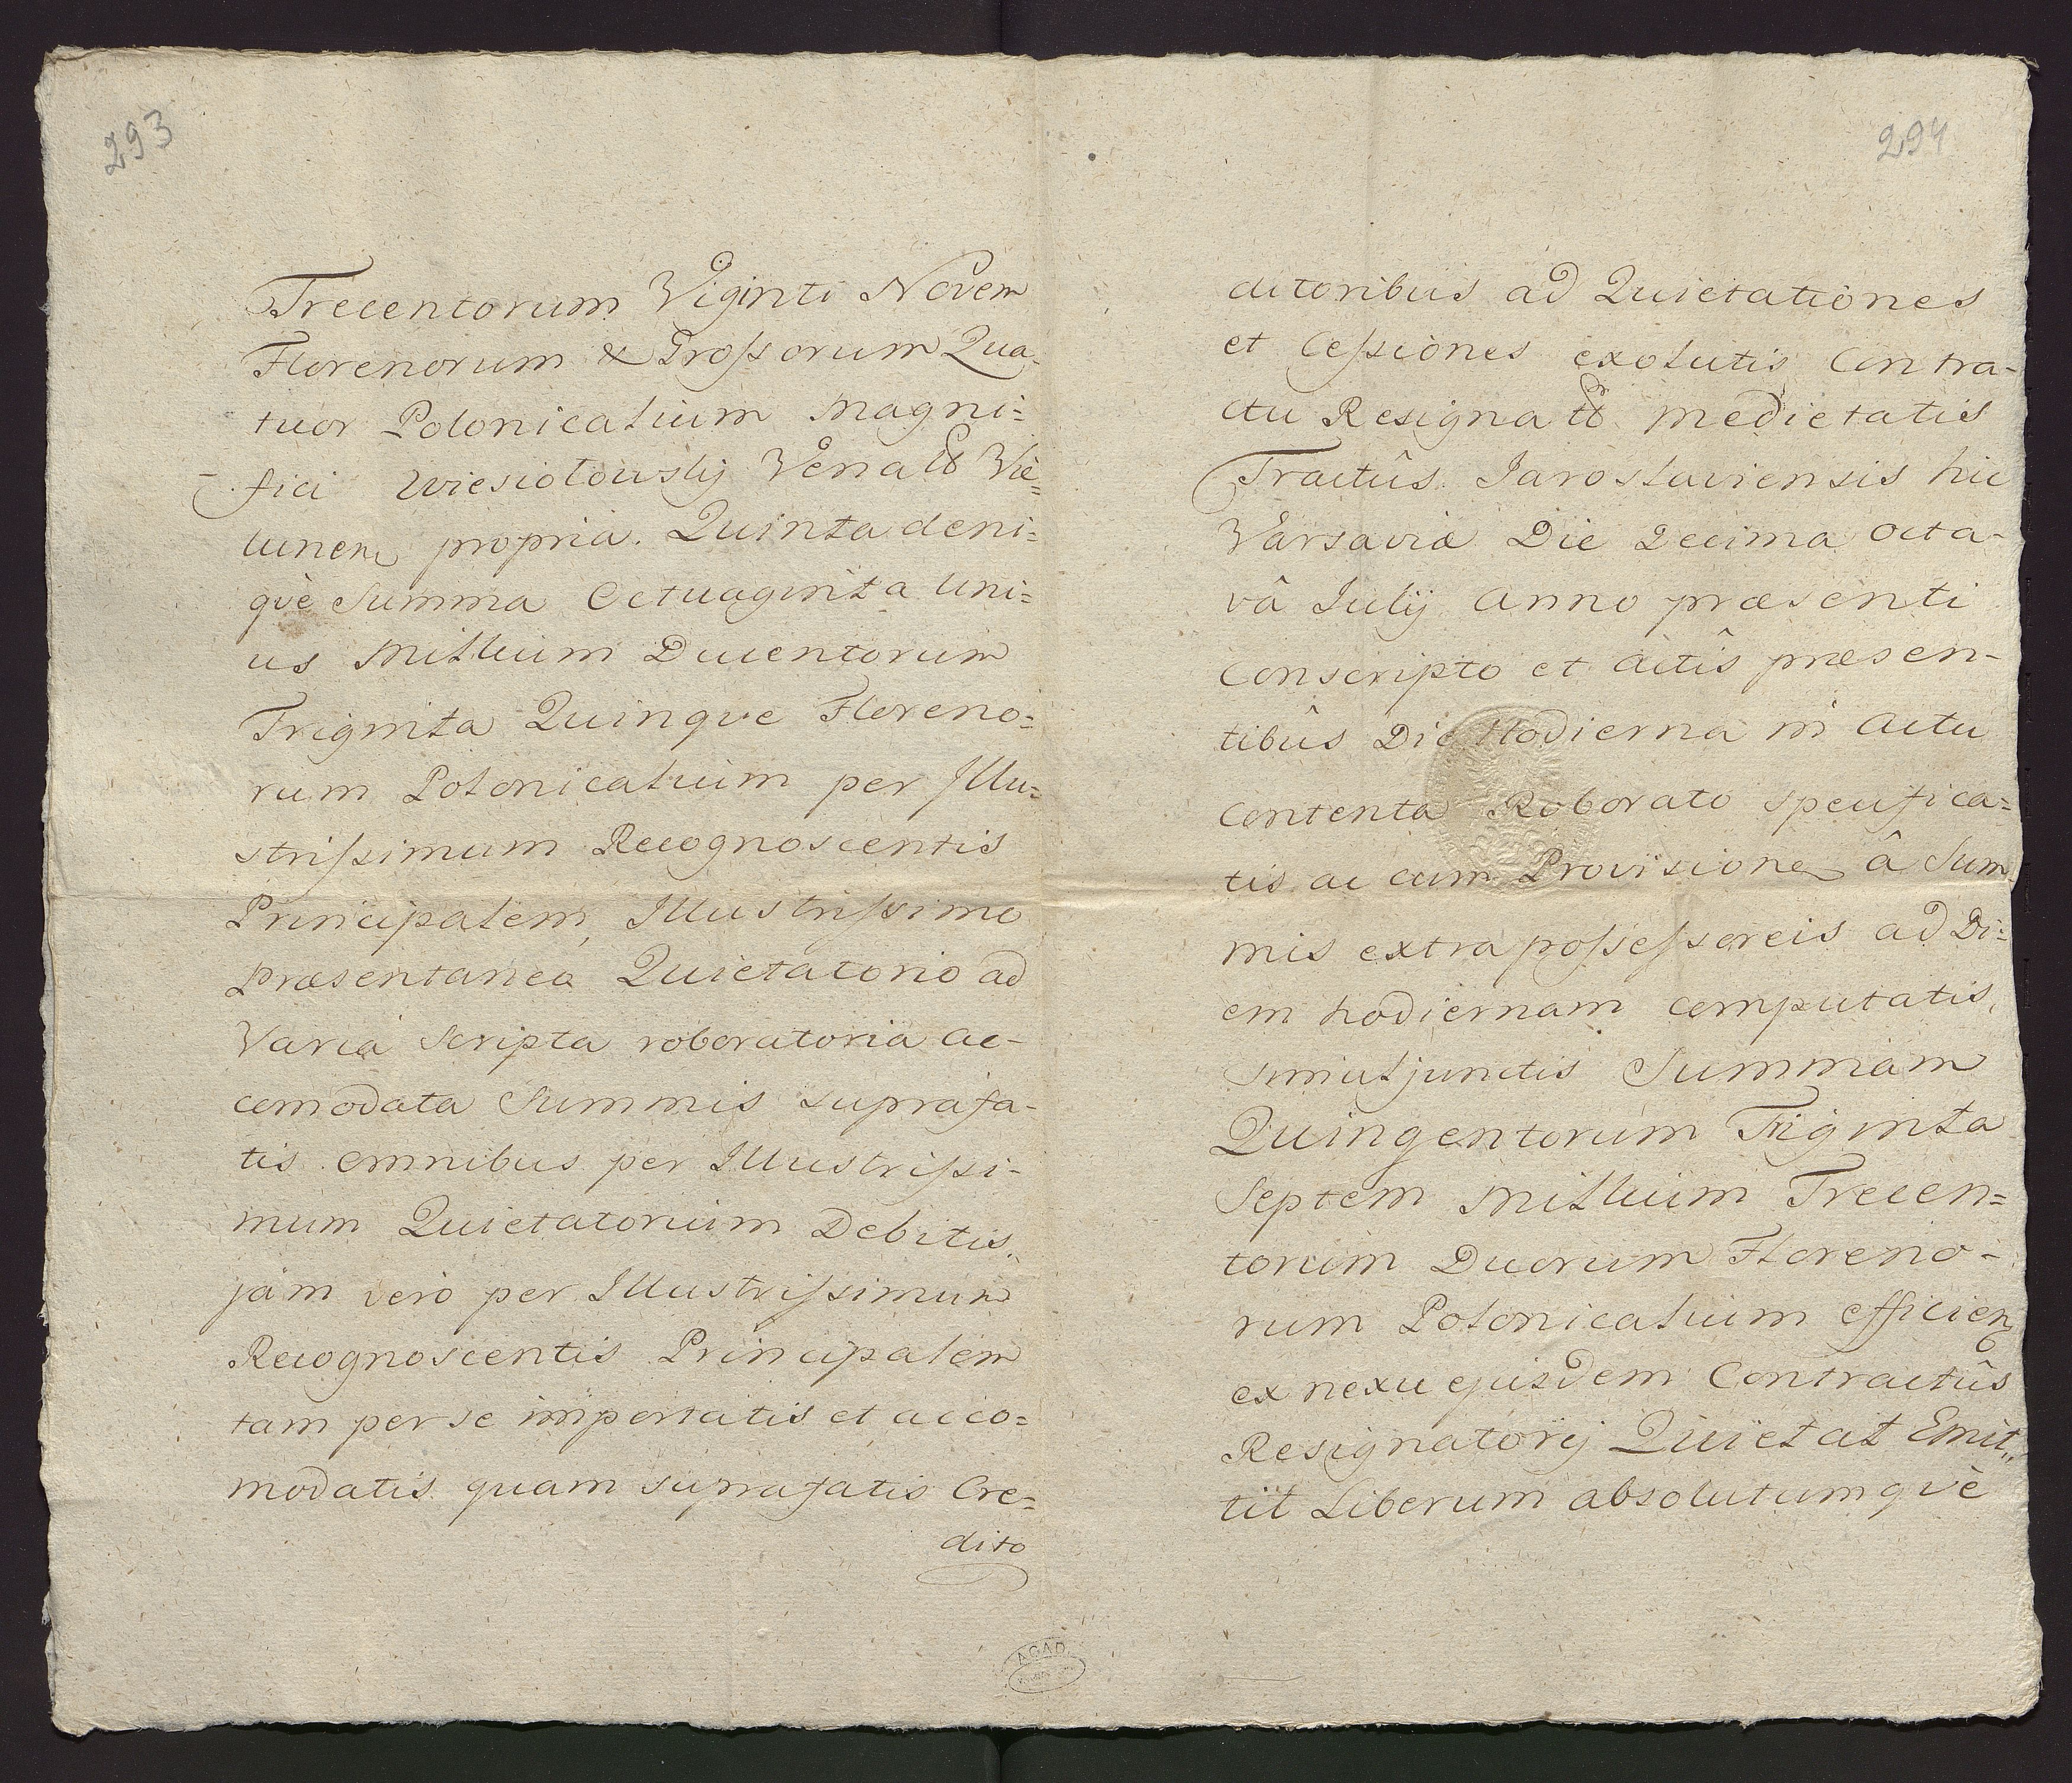 293
Trecentorum Viginti Novem
Florenorum & Grossorum Qua-
tuor Polonicalium Magni=
fici Wiesiołowskij Vie=
lunen propria. Quinta deni=
què Summa Octuaginta Uni=
us Millium Ducentorum
Triginta Quinque Floreno=
rum Polonicalium per Illu=
strissimum Recognoscentis
Principalem, Illustrissimo
præsentaneo Quietatorio ad
Varia Scripta roboratoria ac-
comodata Summis suprafa-
tis omnibus per Illustrissi-
mum Quietatorium Debitis,
jàm verò per Illustrissimum
Recognoscentis Principalem
tam per se importatis et acco=
modatis quam suprafatis Cre=
dito
294
ditoribus ad Quietationes
et Cessiones exolutis Contra-
ctu Medietatis
Tractûs Jaroslaviensis hic
Varsaviæ Die Decima Octa-
vâ Julij Anno præsenti
Conscripto et Actîs præsen-
tibûs Die Hodierna in Actu
contenta Roborato specifica=
tis ac cum Provisione â Sum-
mis extrapossessoreis ad Di=
em hodiernam computatis,
simuljunctis Summam
Quingentorum Triginta
Septem Millium Trecen=
torum Duorum Floreno-
rum Polonicalium efficien
ex nexu ejusdem Contractûs
Resignatorij Quietat Emit,,
tit Liberum absolutumquè
AGAD